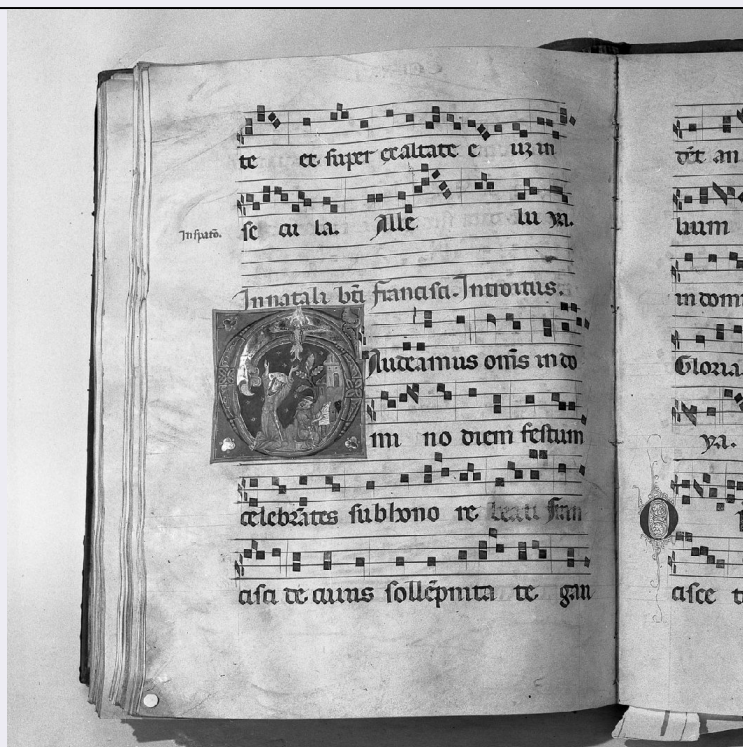 te et super exaltate e um in
se cu la. Alle lu ya.
In sp̄atō.
In natali bt̄i francisci. Introitus.
Gaudeamus om̄s in do
mi no diem festum
celebrātes sub hono re beati fran
cisci de cuius sollēpnita te gau
dēt an
lium
in domi
Gloria
ya.
O
cisce